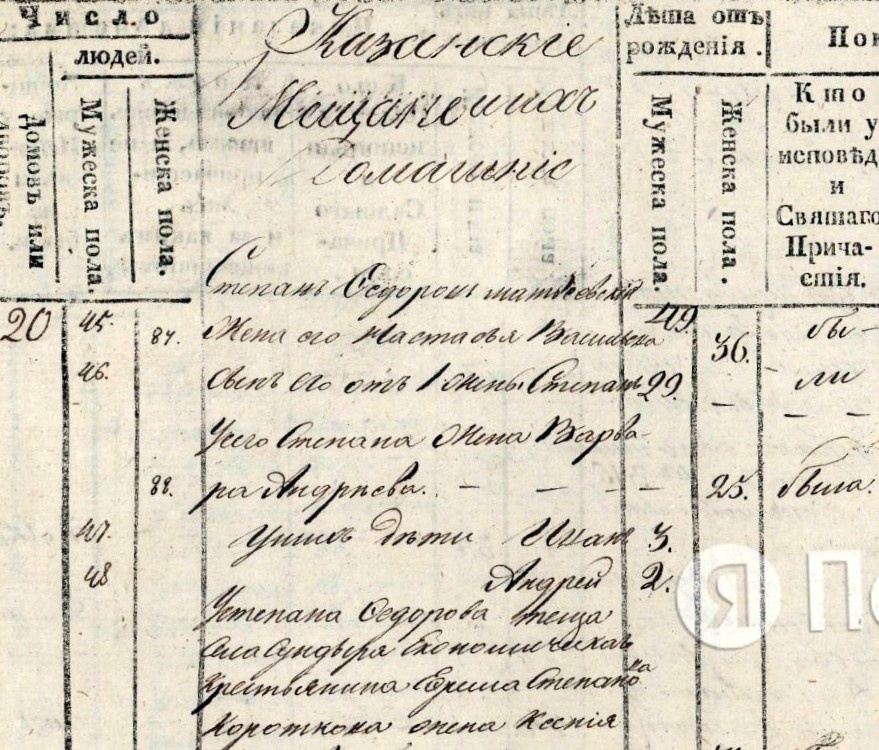 Число
людей.
Домовъ или
Мужеска пола.
Женска пола.
Казанскіе
Мещане и ихъ
домашніе
Лѣта отъ
рожденія.
Мужеска пола.
Женска пола.
Пок
Кто
были у
исповѣд
и
Святаго
Прича-
стія.
Степанъ Ѳедоровъ Матвѣевскій
20 45. 87. Жена его Настасья Васильева 49. 36. бы-
46. сынъ его отъ 1 жены Степанъ 29. ли
У сего Степана жена Варва-
88. ра Андрѣева. 25. была.
47. У нихъ дѣти Иванъ 3.
48 Андрей 2.
У Степана Ѳедорова теща
села Сундыря Економическаго
крестьянина Ефима Степано-
ва
Короткова жена Ксенія
Я П